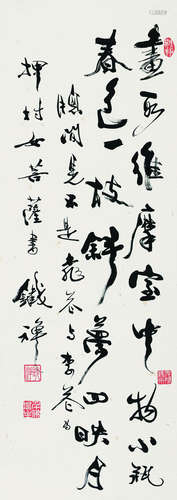 畫取維摩室中物小瓶
春色一枝斜夢回映月
牕間見不是桃花与李花為
村女菩薩書 鐵禪